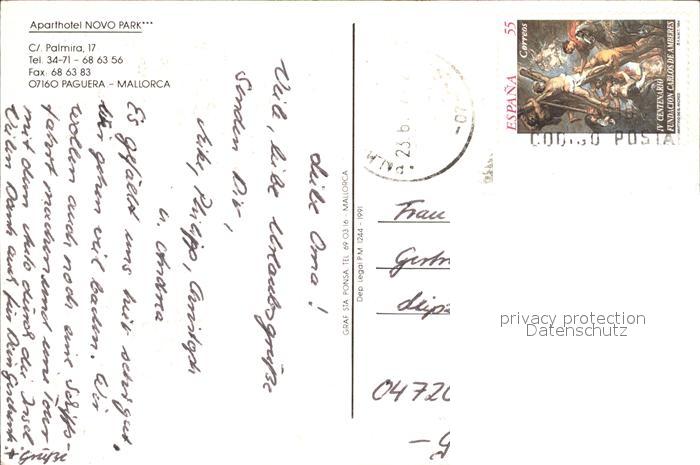 Aparthotel NOVO PARK***
C/. Palmira, 17
Tel. 34-71 - 68 63 56
Fax. 68 63 83
07160 PAGUERA - MALLORCA
Liebe Oma!
Viele, liebe Urlaubsgrüße
senden Dir,
Philipp, Christoph
u. Andrea
Es gefällt uns hier sehr gut.
Wir gehen viel baden. Wir
wollen auch noch eine Schiffs-
fahrt machen und eine Tour
mit dem Auto durch die Insel.
Vielen Dank auch für Dein Geschenk.
Grüße
GRAF STA PONSA. TEL. 69 03 16 - MALLORCA
Dep. Legal P.M. 1244 - 1991
55
Correos
ESPAÑA
IV CENTENARIO
FUNDACION CARLOS DE AMBERES
CODIGO POSTA
Frau
04720
privacy protection
Datenschutz